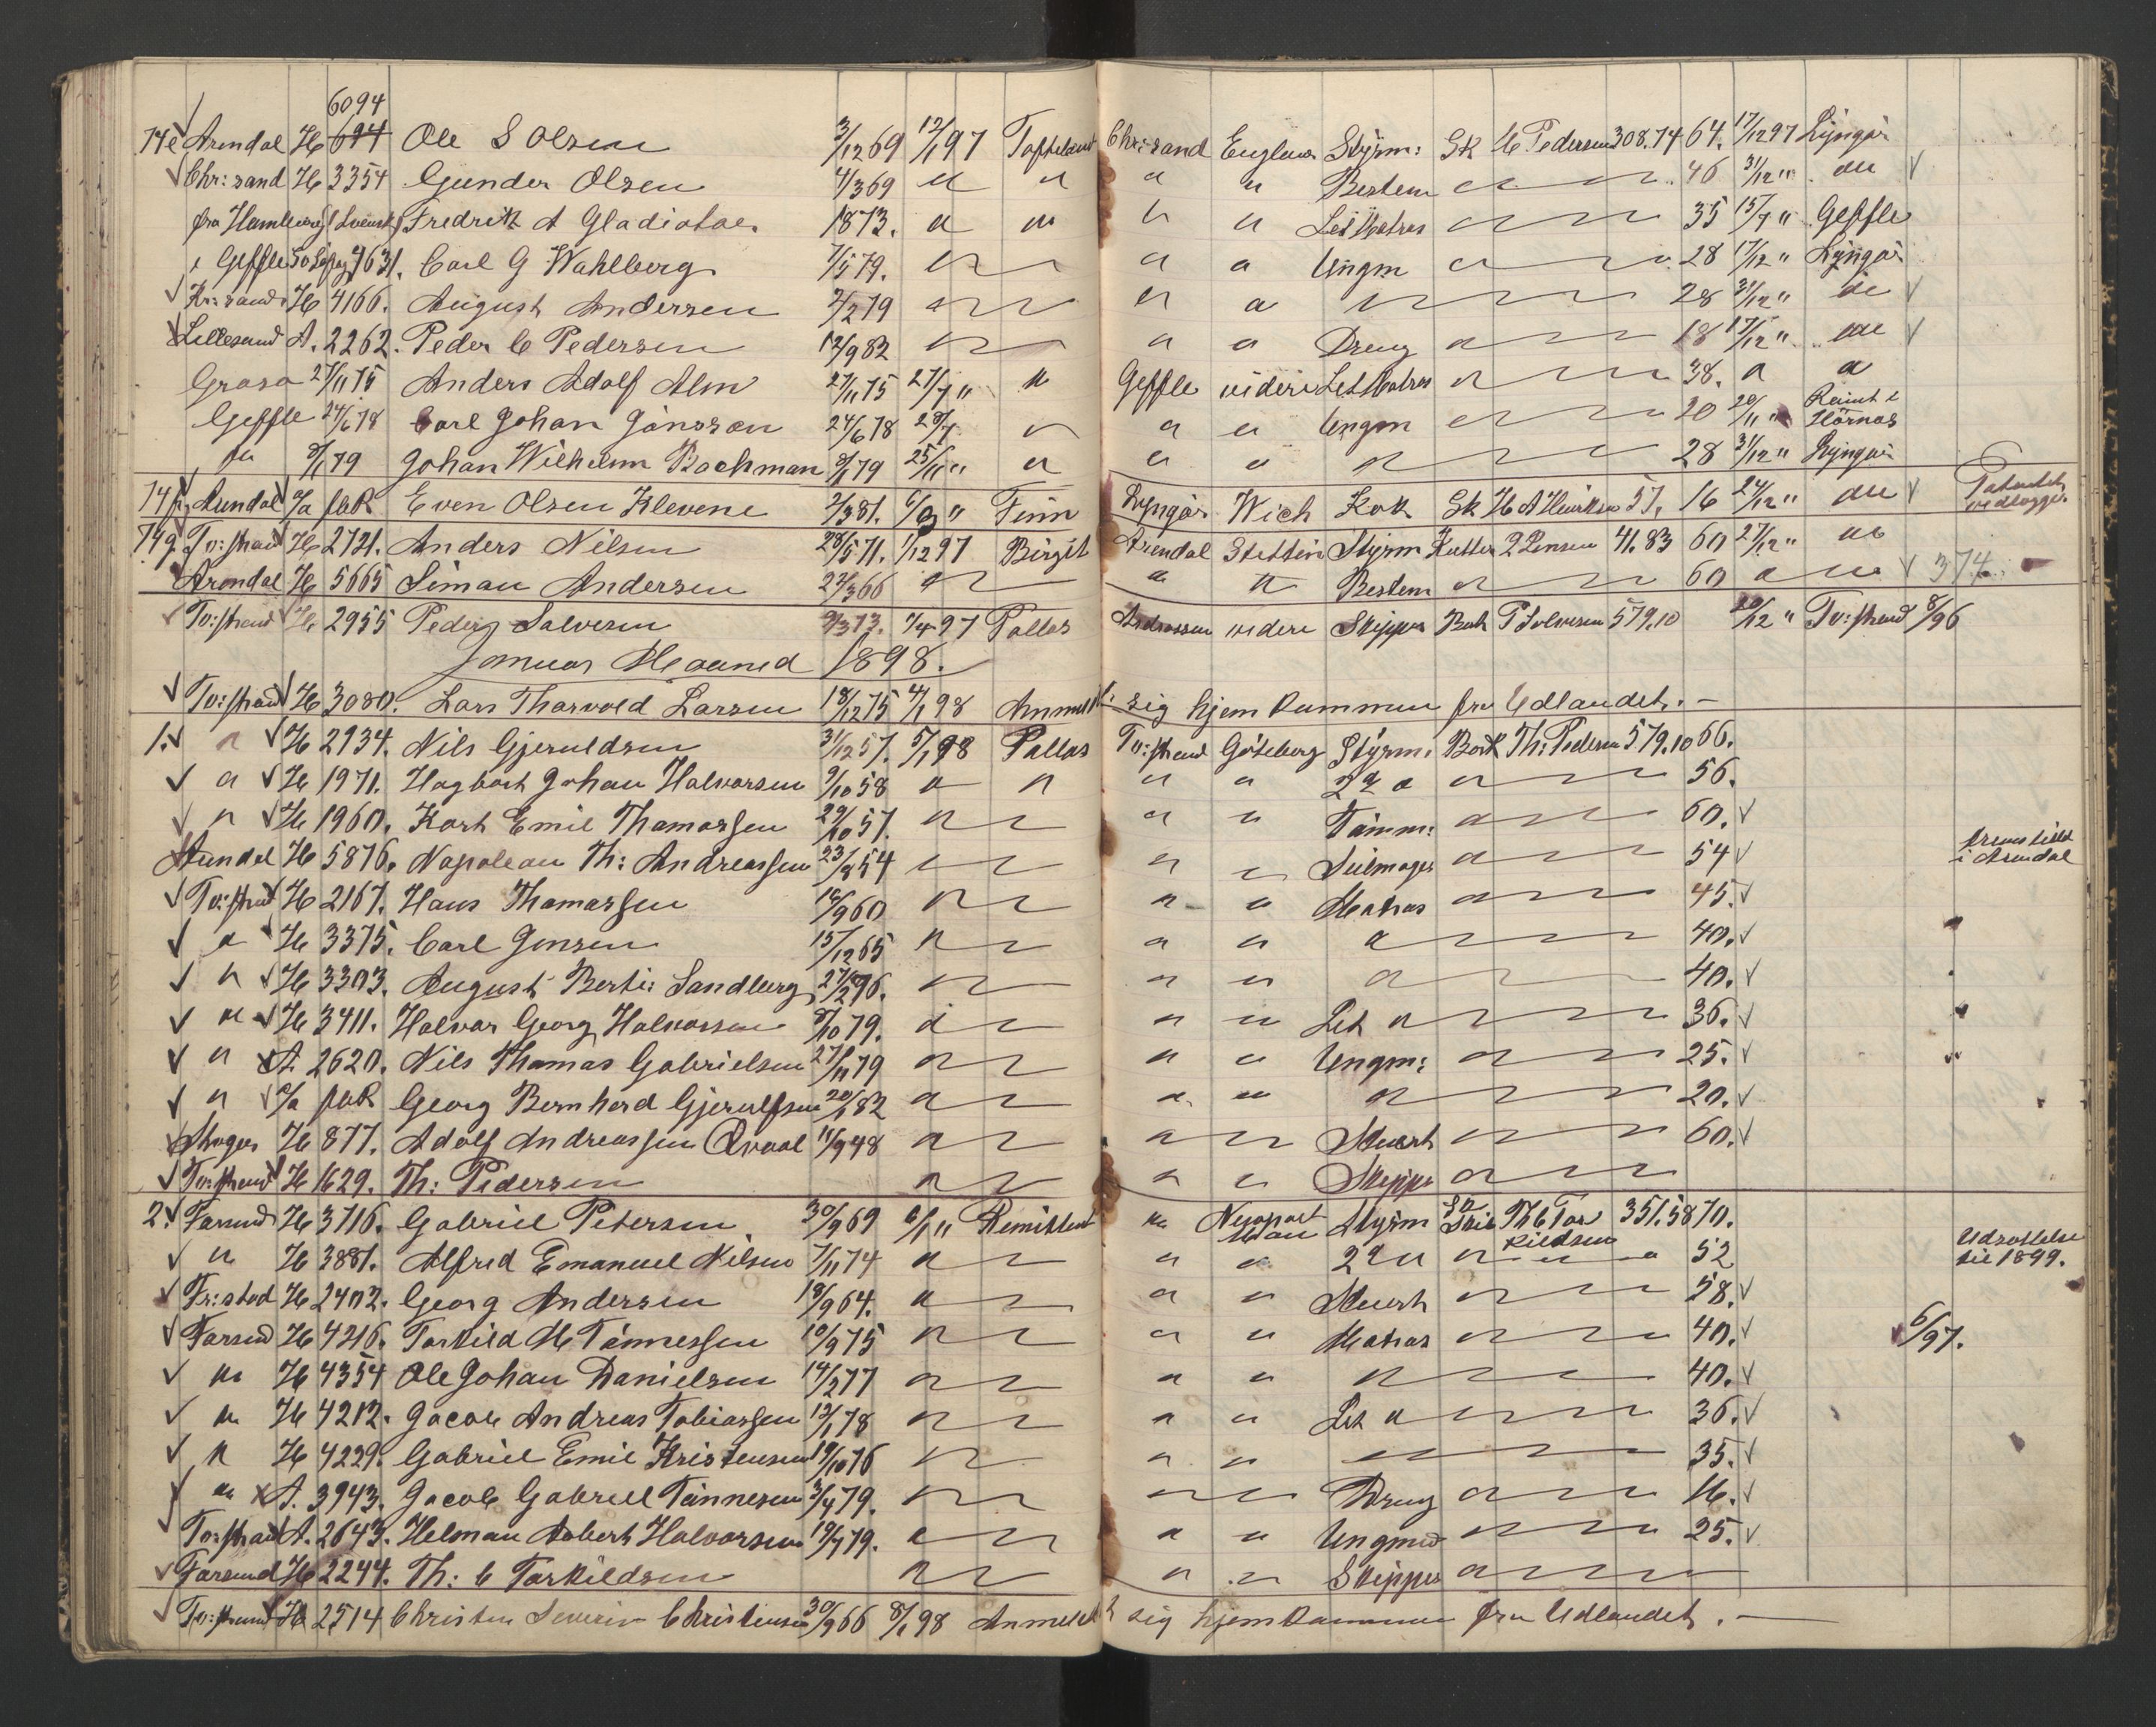 6094
74e Arendal H 694 Ole S Olsen 3/12 69 12/1 97 Chr:sand England Styrm: Sk C Pedersen 308.74 64. 17/12 97 Lyngör
Chr:sand H 3354 Gunder Olsen 4/3 69 " " " " Bestm " 46 31/12 " du
fra Hamburg Svensk Fredrik A Gladiator 1873. " " " " Let Matros " 35 15/7 " Geffle
Geffle 1631. Carl G Wahlberg 7/5 79. " " " Ungm " 28 17/12 " Lyngör
Kr:sand H 4166. August Andersen 2/2 79 " " " " 28 31/12 " du
Lillesand A. 2262. Peder C Pedersen 12/9 82 " " " Dreng " 18 17/12 " du
Graso 27/11 75 Anders Adolf Alm 27/11 75 27/7 " " Geffle videre Let Matros " 38. " "
Geffle 24/6 78 Carl Johan Jönsson 24/6 78 28/7 " " " Ungm " 20 20/11 " Rømt i Hörnos
du 8/1 79 Johan Wilhelm Bachman 8/1 79 25/11 " " " " " 28 31/12 " Lyngör
74f Arendal Even Olsen Klevene 2/3 81. " Finn Lyngör Wich Kok Sk H A Henriksen 57. 16 24/12 " du
74g Tv:strand H 2721. Anders Nilsen 28/5 71. 1/12 97 Birgit Arendal Stettin Styrm Kutter 41.83 60 27/12 " du
Arendal H 5665 Simon Andersen 23/3 66 " " " Bestm " 60 " " 374
Tv:strand H 2955 Peder Salvesen 9/3 73. 7/4 97 Pallas Ardrossan videre Skipper Bark P Salvesen 579.10 20/12 " Tv:strand 8/96
Januar Maaned 1898.
Tv:strand H 3080. Lars Tharvald Larsen 18/12 75 4/1 98 Anmeldt sig hjemkommen fra Udlandet. -
1. " H 2934. Nils Gjeruldsen 31/12 57. 5/1 98 Pallas Tv:strand Göteborg Styrm. Bark Th: Pedersen 579.10 66.
" H 1971. Hagbart Johan Halvorsen 9/10 58 " " " " 2d " " 56.
" H 1960. Kort Emil Thomassen 29/10 57. " " " Tömm: " 60.
Arendal H 5876. Napoleon Th: Andreassen 23/8 54 " " " Seilmager " 54 fremstillt i Arendal
Tv:strand H 2167. Hans Thomassen 16/9 60 " " " Matros " 45.
" H 3375. Carl Jensen 15/12 65 " " " " " 40.
" H 3303. August Berti: Sandberg 27/2 96. " " " " " 40.
" H 3411. Halvor Georg Halvorsen 8/10 79. " " " Let " " 36.
" A 2620. Nils Thomas Gabrielsen 27/11 79 " " " Ungm: " 25.
" Georg Bernhard Gjerulfsen 20/1 82 " " " " " 20.
H 877. Adolf Andreassen Qvaal 11/9 48 " " " Stuert " 60.
Tv:strand H 1629. Th: Pedersen " " " Skipper "
2. Farsund H 3716. Gabriel Petersen 30/9 69 6/1 " Remittent " Newport Styrm Sk Skib Th C Torkildsen 351.58 70.
" H 3881. Alfred Emanuel Nilsen 7/11 74 " " " 2d " " 52 Udsættelse til 1899.
Fr:stad H 2402. Georg Andersen 18/9 64. " " " Stuert " 58.
Farsund H 4216. Torkild M Tönnessen 10/9 75 " " " Matros " 40. 6/97.
" H 4354 Ole Johan Danielsen 14/2 77 " " " " " 40.
" H 4212. Jacob Andreas Tobiassen 12/1 78 " " " Let " " 36.
" H 4229. Gabriel Emil Kristensen 19/10 76 " " " " " 35.
" A. 3943. Jacob Gabriel Tönnesen 3/4 79. " " " Dreng " 16.
Tv:strand A. 2643. Helman Robert Halvorsen 19/7 79. " " " Ungmd " 25.
Farsund H 2244. Th: C Torkildsen " " " Skipper "
Tv:strand H 2514 Christen Severin Christensen 30/9 66 8/1 98 Anmeldt sig hjemkommen fra Udlandet. -